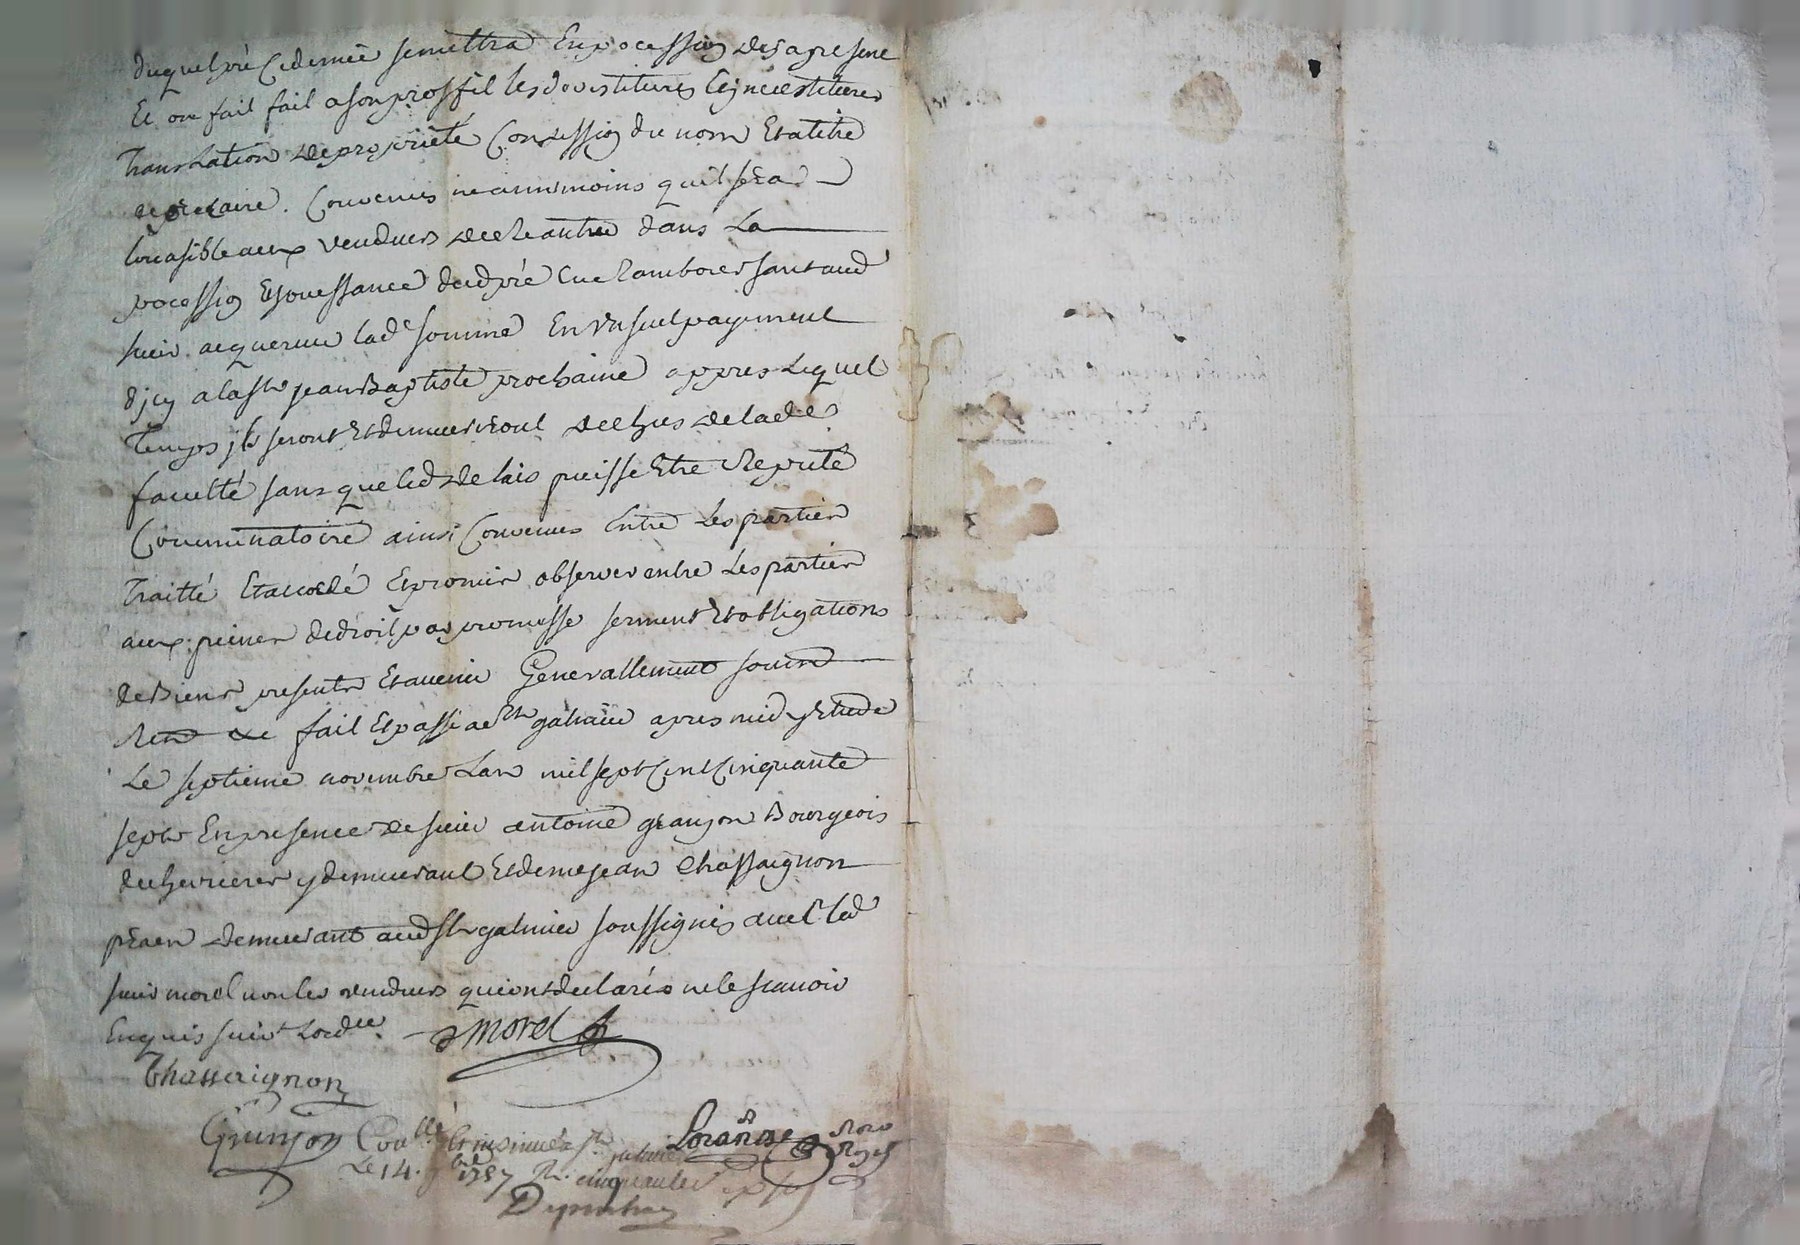 duquel pré cedernié semettra En pocession des apresent
Et on fait fait a son proffit les devestitures Et jnvestitures
Translation depropriété Confession du nom Et atitre
de precaire. Convenus neanmoins quil sera
loüasible aux vendeurs de Reantrer dans La
pocession Et jouessance dudpré En Ramboursant aud
sieur acquereur lad somme En Un seul payement
d'jcy a la St jean Baptiste prochaine appres Lequel
Temps jls seront Et demeureront dechus delade
faculté sans que led delais puisse Etre Reputé
Comminatoire ainsi Convenus Entre Les partier
Traitté Et accordé Et promir observer entre Les partier
aux peiner de droit par promesse serment Et obligations
de Bienr presentr Et avenir Generallement soumr
Renon &c fait Et passé a St galmier apres midy Etude
Le septieme novembre Lan mil sept Cent Cinquante
sept En presence de sieur antoine granjon Bourgeois
de chevrierer y demeurant Et de me jean Chassaignon
praen demeurant aud St galmier soussignés avec led
sieur morel non les vendeurs qui ont declarés ne le scavoir
Enquis suivt Lordce. Morel
Chassaignon
Grunjon Conllé Et insinué a St galmier
Le 14. 9bre 1757 R. cinquante sept s